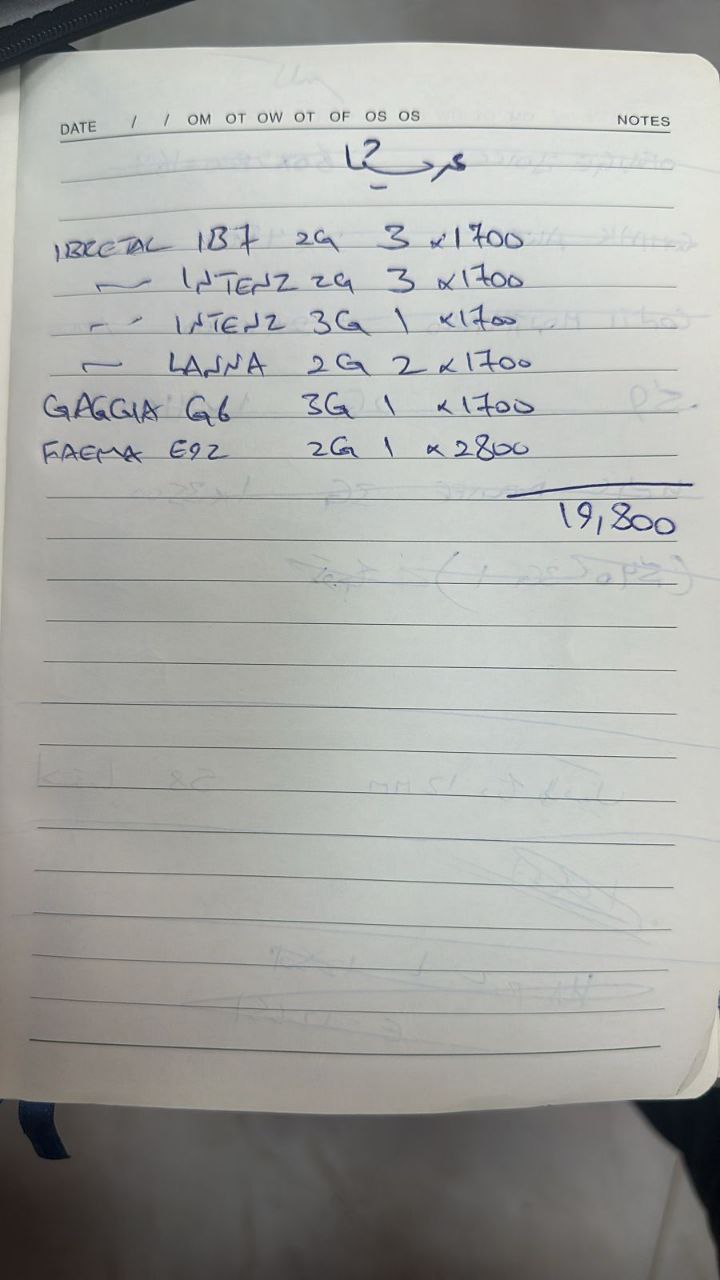 DATE / / OM OT OW OT OF OS OS NOTES
IBRETAL IB7 2G 3 x1700
〃 INTENZ 2G 3 x1700
〃 INTENZ 3G 1 x1700
〃 LANNA 2G 2 x1700
GAGGIA G6 3G 1 x1700
FAEMA E92 2G 1 x2800
19,800